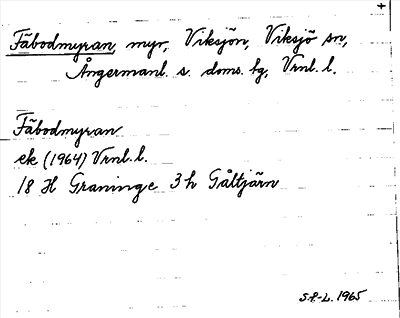 Fäbodmyran, myr, Viksjön, Viksjö sn,
Ångermanl. s. doms. tg, Vrnl. l.
Fäbodmyran
ek (1964) Vrnl. l.
18 H Graninge 3 h Gåltjärn
S.P.-L. 1965